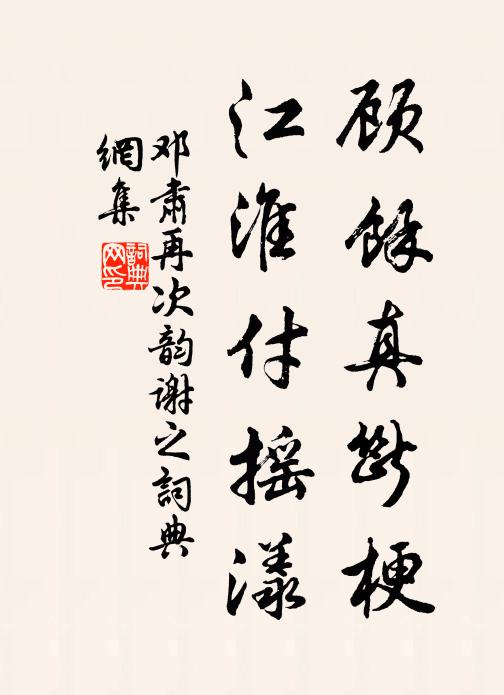 顾餘真断梗
江淮付摇漾
邓肃再次韵谢之詞典
網集
詞典
网印